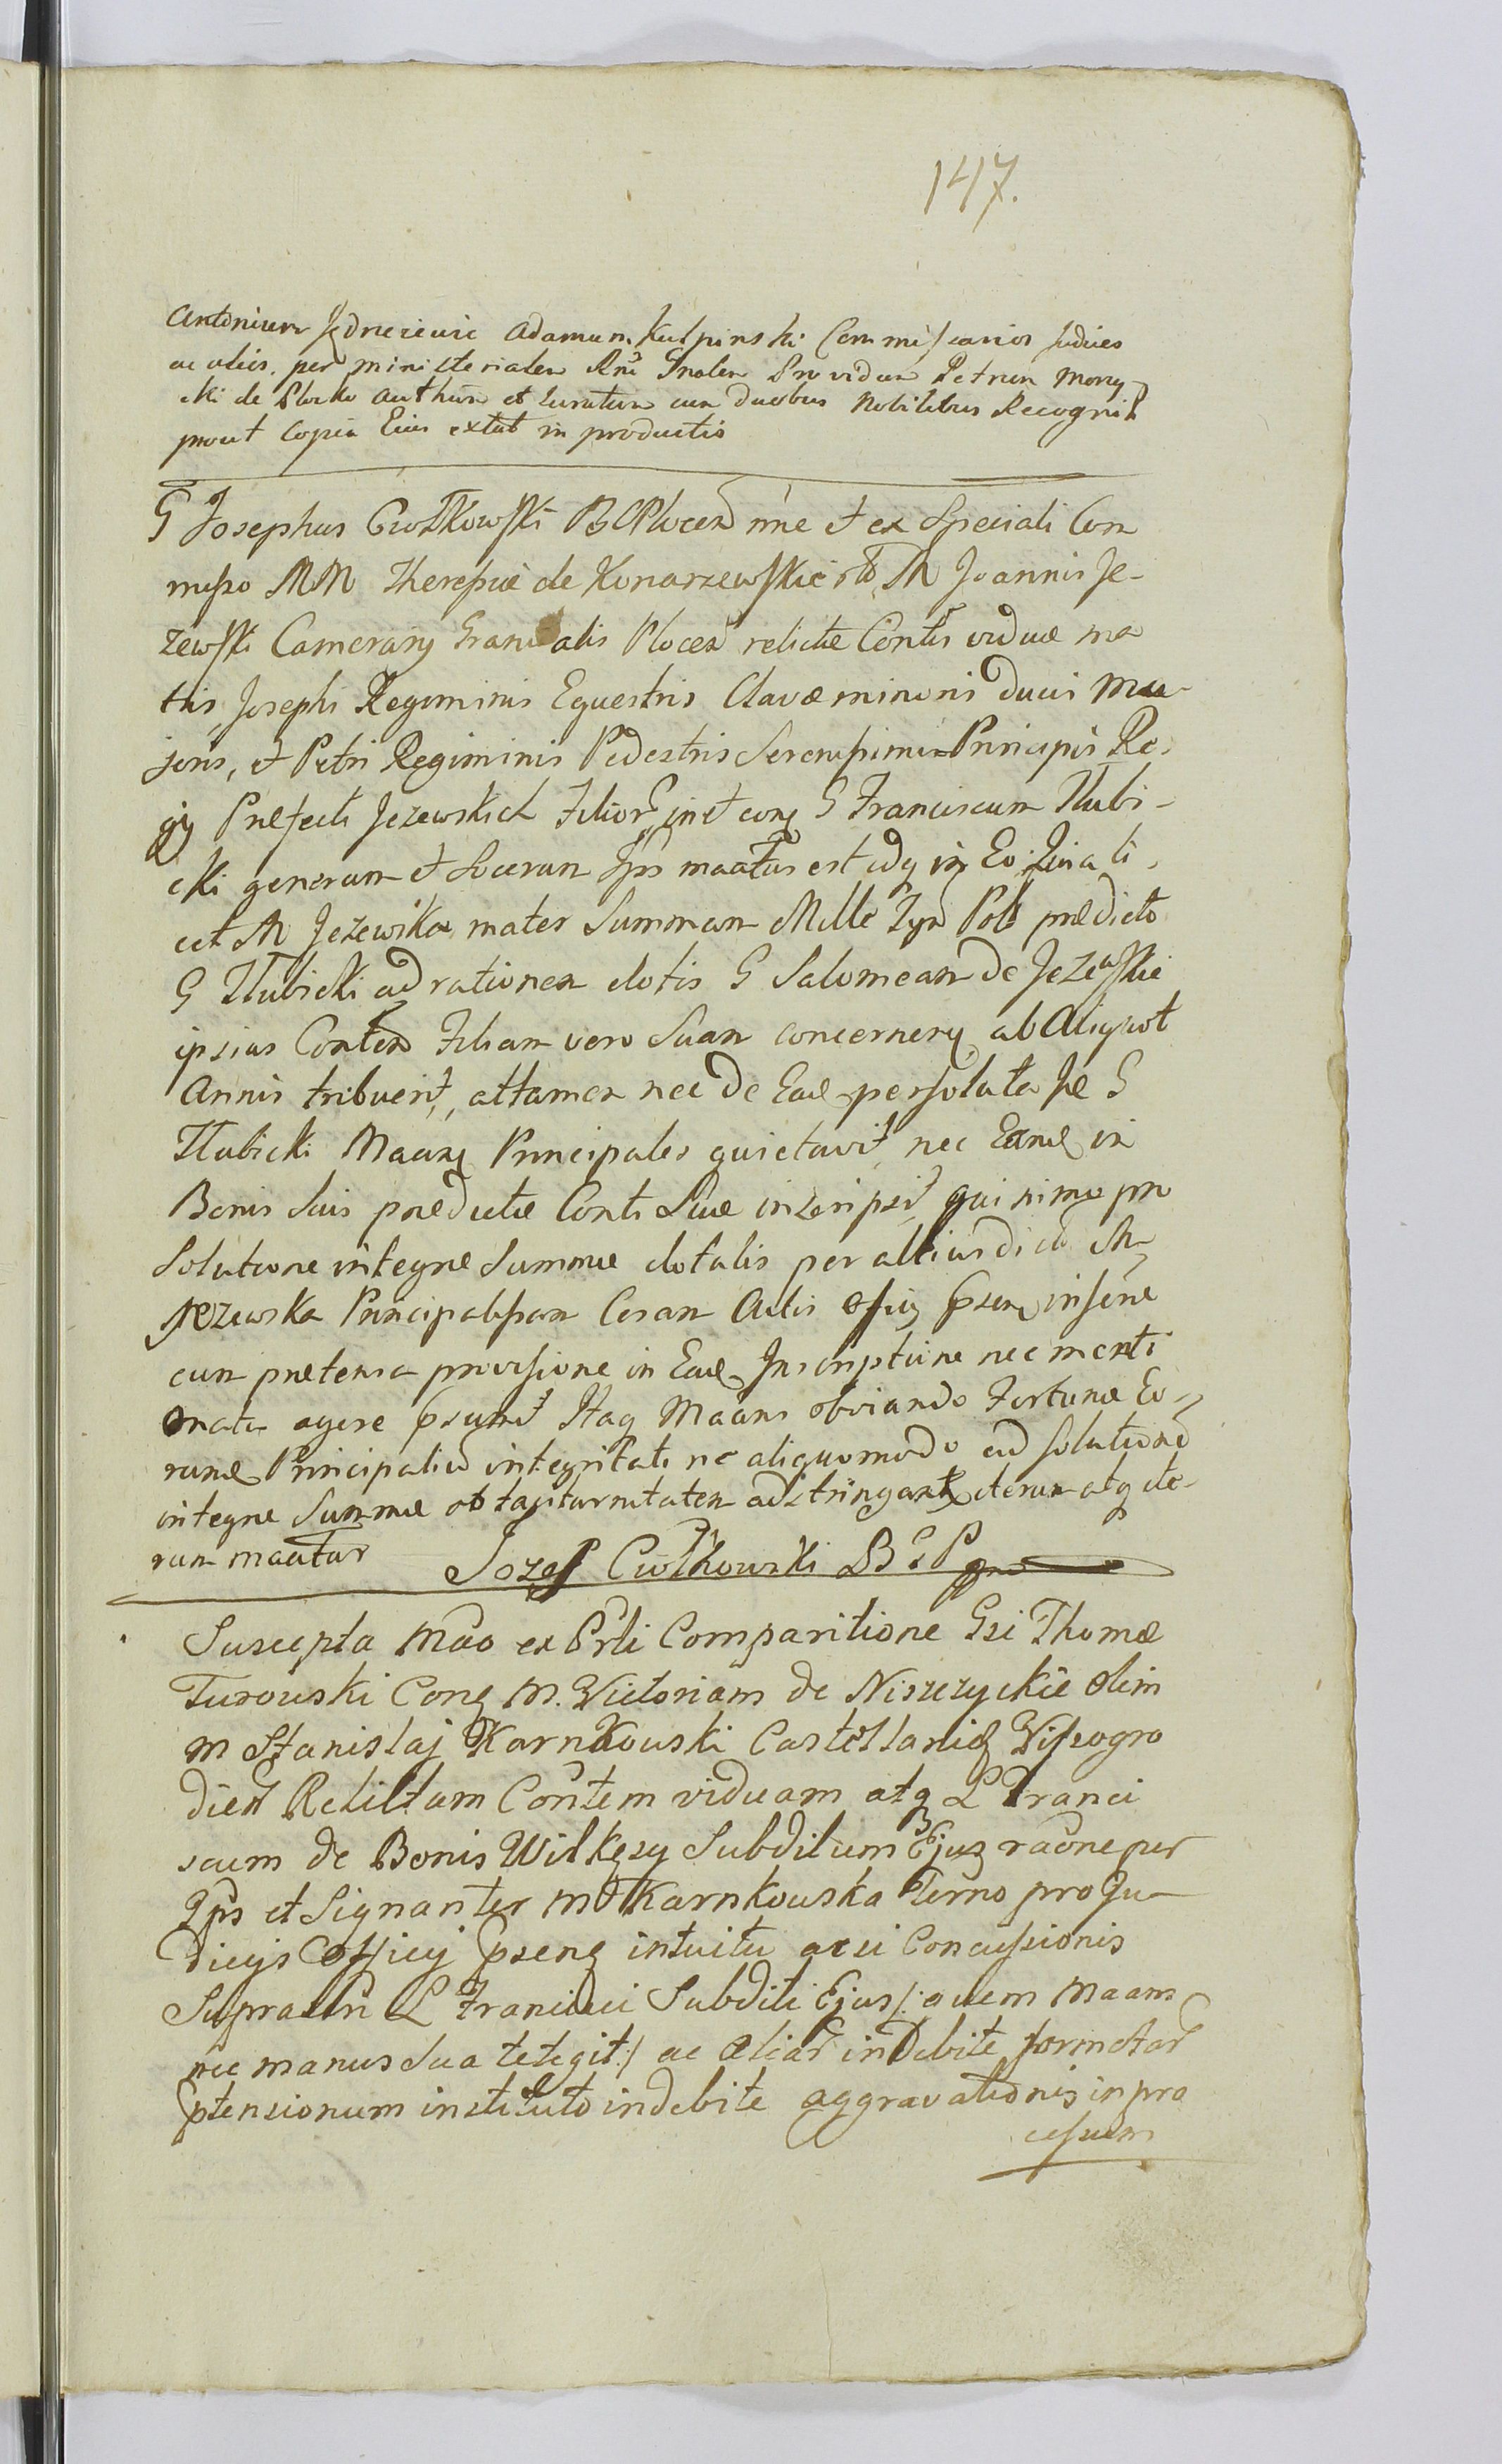 147.
Antonium Jędrzeiewic Adamum Kulpinski Commissarios Judices
ac alios per ministerialem Rni Gnalem Providum Petrum Mory
cki de Plocko Authum et Juratum cum duobus Nobilibus Recognit
prout Copia Eius extat in productis
G Josephus Ciołkowski BCPlocen nne et ex Speciali Com
misso MM Theresiæ de Konarzewskie olo M Joannis Je-
zewski Camerarij Granialis Plocen relictæ Contis viduæ ma
tris Josephi Regiminis Equestris Clavæ minoris Ducis Ma-
joris, et Petri Regiminis Pedestris Serenissimi Principis Re
gij Præfecti Jezewskich Filior inet conq G Franciscum Hubi-
cki generum et Socerum Ips maatus est idq in Eo: Quia li-
cet M Jezewska mater Summam Mille Zyn Pol prædicto
G Hubicki ad rationem dotis G Salomeam de Jezewskie
ipsius Contem Filiam vero Suam concernens ab aliquot
Annis tribuerit, attamen nec de Eade persoluta se G
Hubicki Maanq Principales quietavit, nec Eande in
Bonis Suis prædictæ Conti Suæ inscripsit, qui nimo pro
Solutione integræ Summæ dotalis per altius dicta M
Jezewska Principalissam Coram Actis offij Psen inscrip
cum prætensa provisione in Eade Inscriptione nec menti
onata agere Psumit Itaq Maans obviando Fortunæ Eo-
runde Principaliu integritati ne aliquomodo ad solutione
integræ Summæ ob taciturnitatem adstringantr iterum atq ite-
rum maatur Jozef Ciołkowski BCP mp
Suscepta Mao ex Prli Comparitione Gsi Thomæ
Turowski Conq M. Victoriam de Niszczyckie olim
M Stanislaj Karnkowski Castellanid Wissogro
dien Relictam Contem viduam atq L Franci
scum de Bonis Wilkęsy Subditum Ejus raone per
Ips et Signanter M Karnkowska Termo pro Ju-
dicijs Officij Psenq intuitu acsi Concussionis
Suprattn L Francisci Subditi Ejus /: quem Maans
nec manus sua tetegit :/ ac aliar indebite formatar
Ptensionum instituto indebite aggravationis in pro
cessum